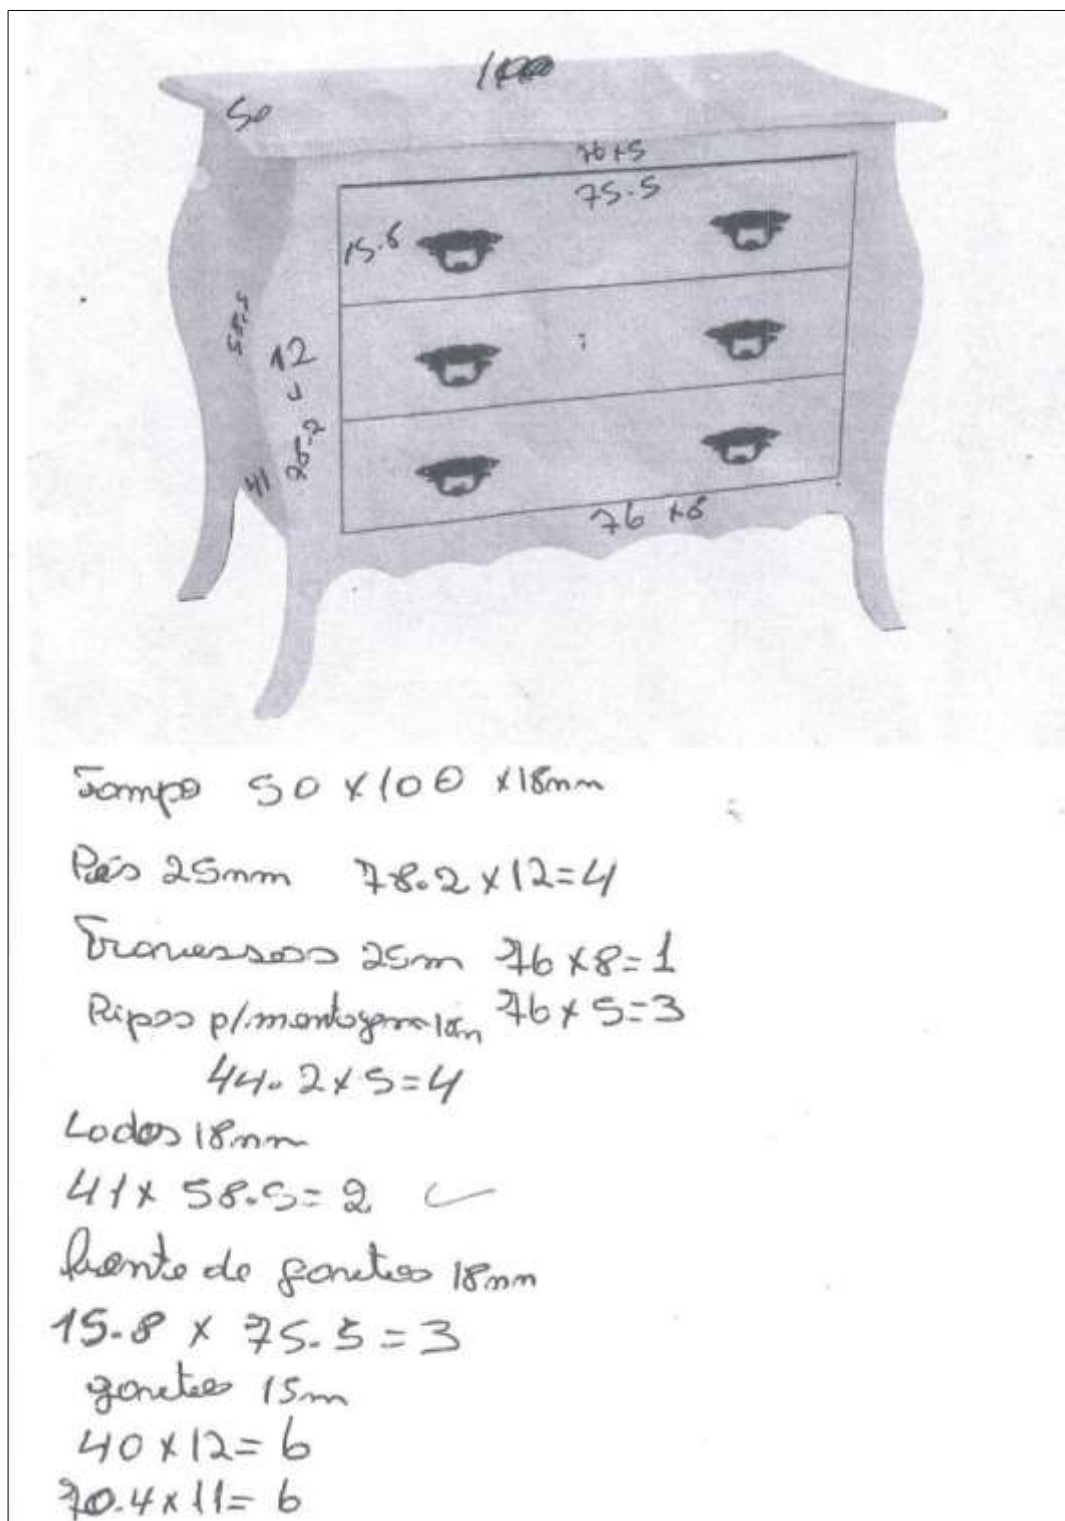 100
50
76x5
75.5
15.8
58.5
12
x
78.2
41
76 x8
Tampo 50 x 100 x18mm
Pés 25mm 78.2 x 12=4
Travessas 25m 76 x 8=1
Ripas p/montagem 18m 76 x 5=3
44.2 x 5=4
Lados 18mm
41x 58.5=2 ✓
frente de gavetas 18mm
15.8 x 75.5=3
gavetas 15m
40 x 12= 6
70.4 x 11= 6